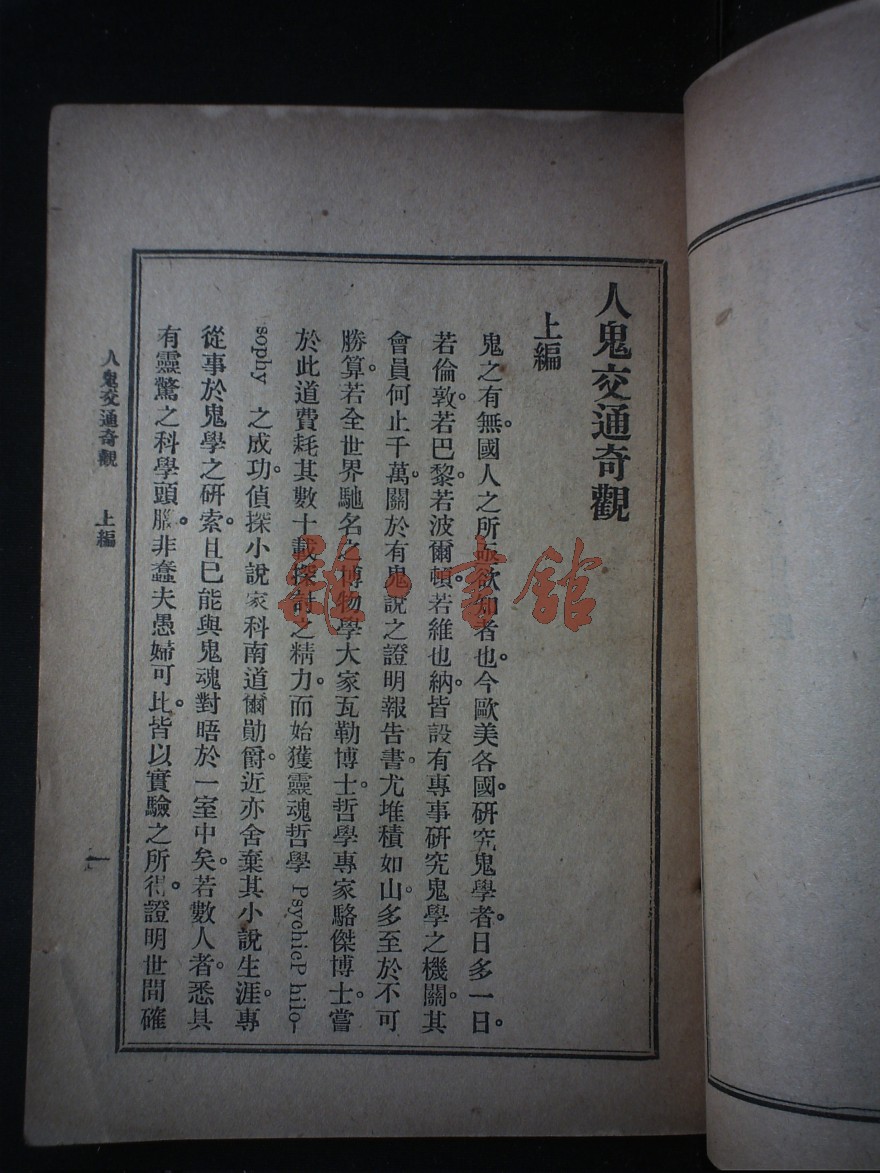 人鬼交通奇觀
上編
鬼之有無。國人之所亟欲知者也。今歐美各國。研究鬼學者。日多一日。
若倫敦。若巴黎。若波爾頓。若維也納。皆設有專事研究鬼學之機關。其
會員何止千萬。關於有鬼說之證明報告書。尤堆積如山。多至於不可
勝算。若全世界馳名之博物學大家瓦勒博士。哲學專家駱傑博士。嘗
於此道費耗其數十載探討之精力。而始獲靈魂哲學 PsychicP hilo-
sophy 之成功。偵探小說家科南道爾勛爵。近亦舍棄其小說生涯。專
從事於鬼學之研索。且已能與鬼魂對晤於一室中矣。若數人者。悉具
有靈驚之科學頭腦。非蠢夫愚婦可比。皆以實驗之所得。證明世間確
人鬼交通奇觀 上編 一
雜·書館